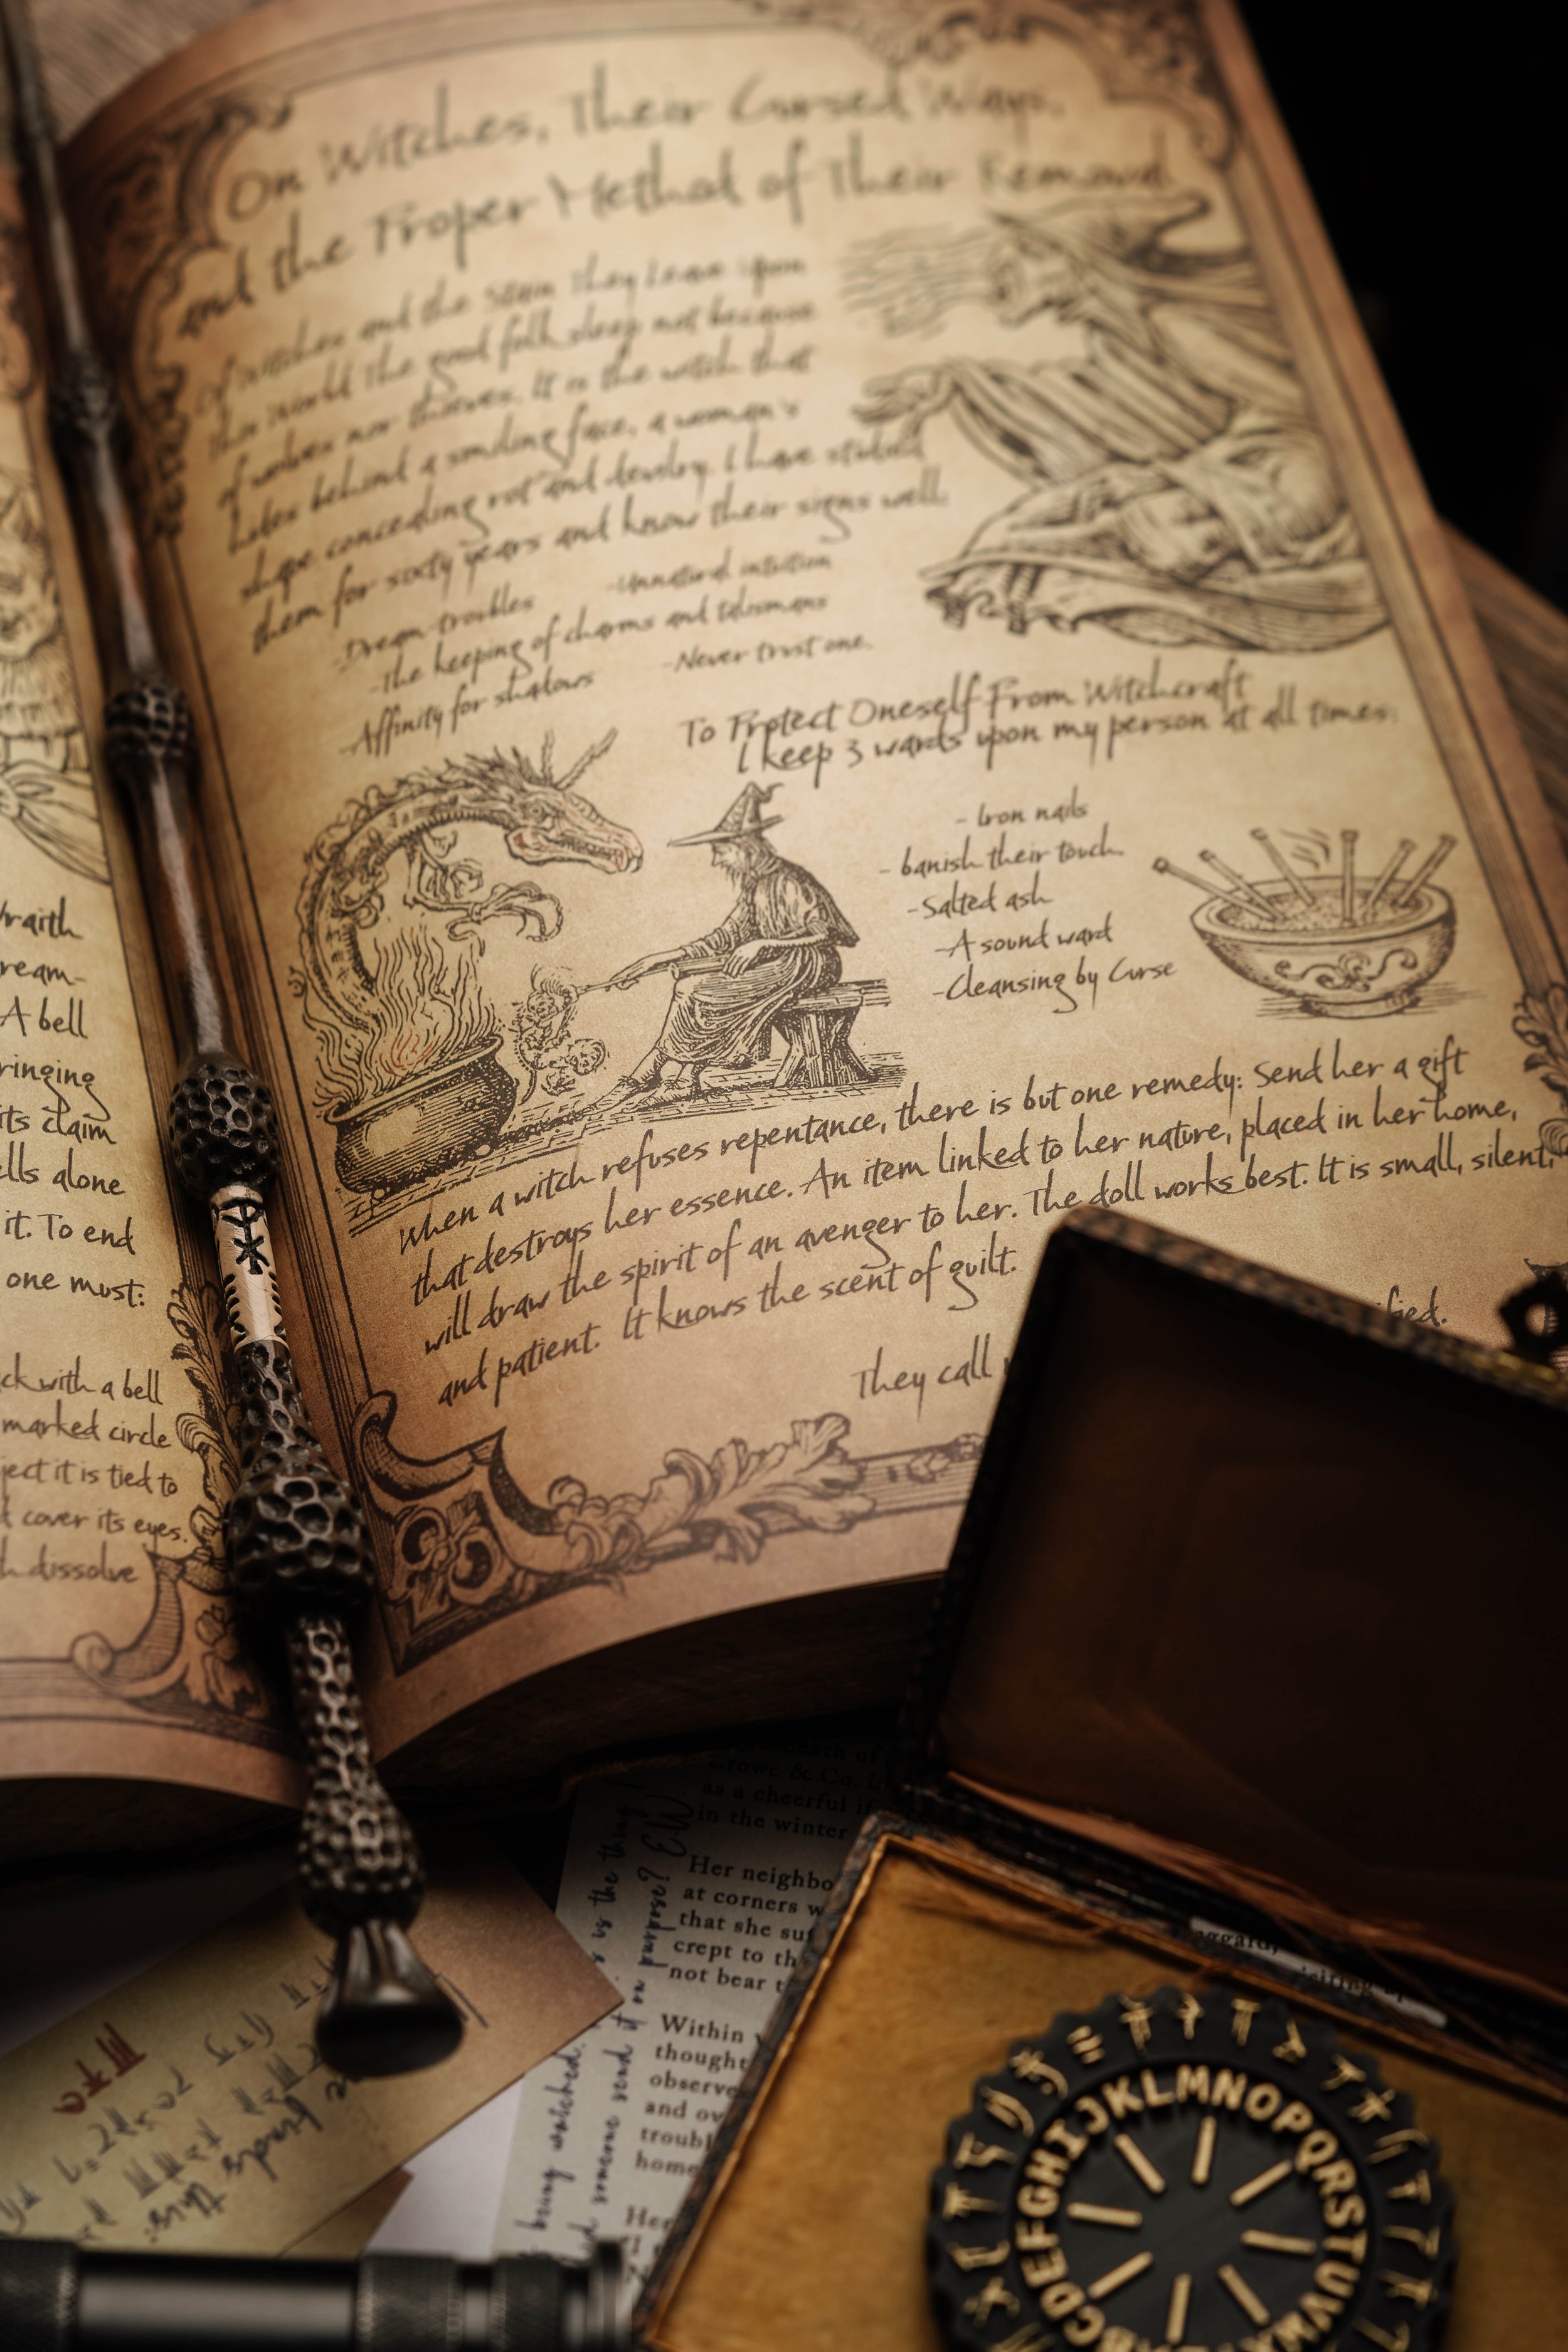 On Witches, Their Cursed Ways,
and the Proper Method of Their Removal
Of Witches and the Stain They Leave Upon
this World The good folk sleep not because
of wolves nor thieves. It is the witch that
hides behind a smiling face, a woman's
shape concealing rot and devilry. I have studied
them for sixty years and know their signs well.
-Dream troubles
-Unnatural intuition
-The keeping of charms and talismans
-Affinity for shadows
-Never trust one.
To Protect Oneself From Witchcraft
I keep 3 wards upon my person at all times:
- Iron nails
- banish their touch
-Salted ash
-A sound ward
-Cleansing by Curse
When a witch refuses repentance, there is but one remedy: Send her a gift
that destroys her essence. An item linked to her nature, placed in her home,
will draw the spirit of an avenger to her. The doll works best. It is small, silent,
and patient. It knows the scent of guilt.
ified.
They call
Wraith
ream-
A bell
ringing
its claim
ells alone
it. To end
one must:
ck with a bell
marked circle
ject it is tied to
cover its eyes.
dissolve
Crowe & Co.
as a cheerful
in the winter
Her neighbo
at corners w
that she suf
crept to th
not bear t
Within
thought
observe
and ov
troubl
home
Her
is the thing
being watched.
someone send it on purpose? EW
this:
aggard,
isiting
ABCDEFGHIJKLMNOPQRSTUVW